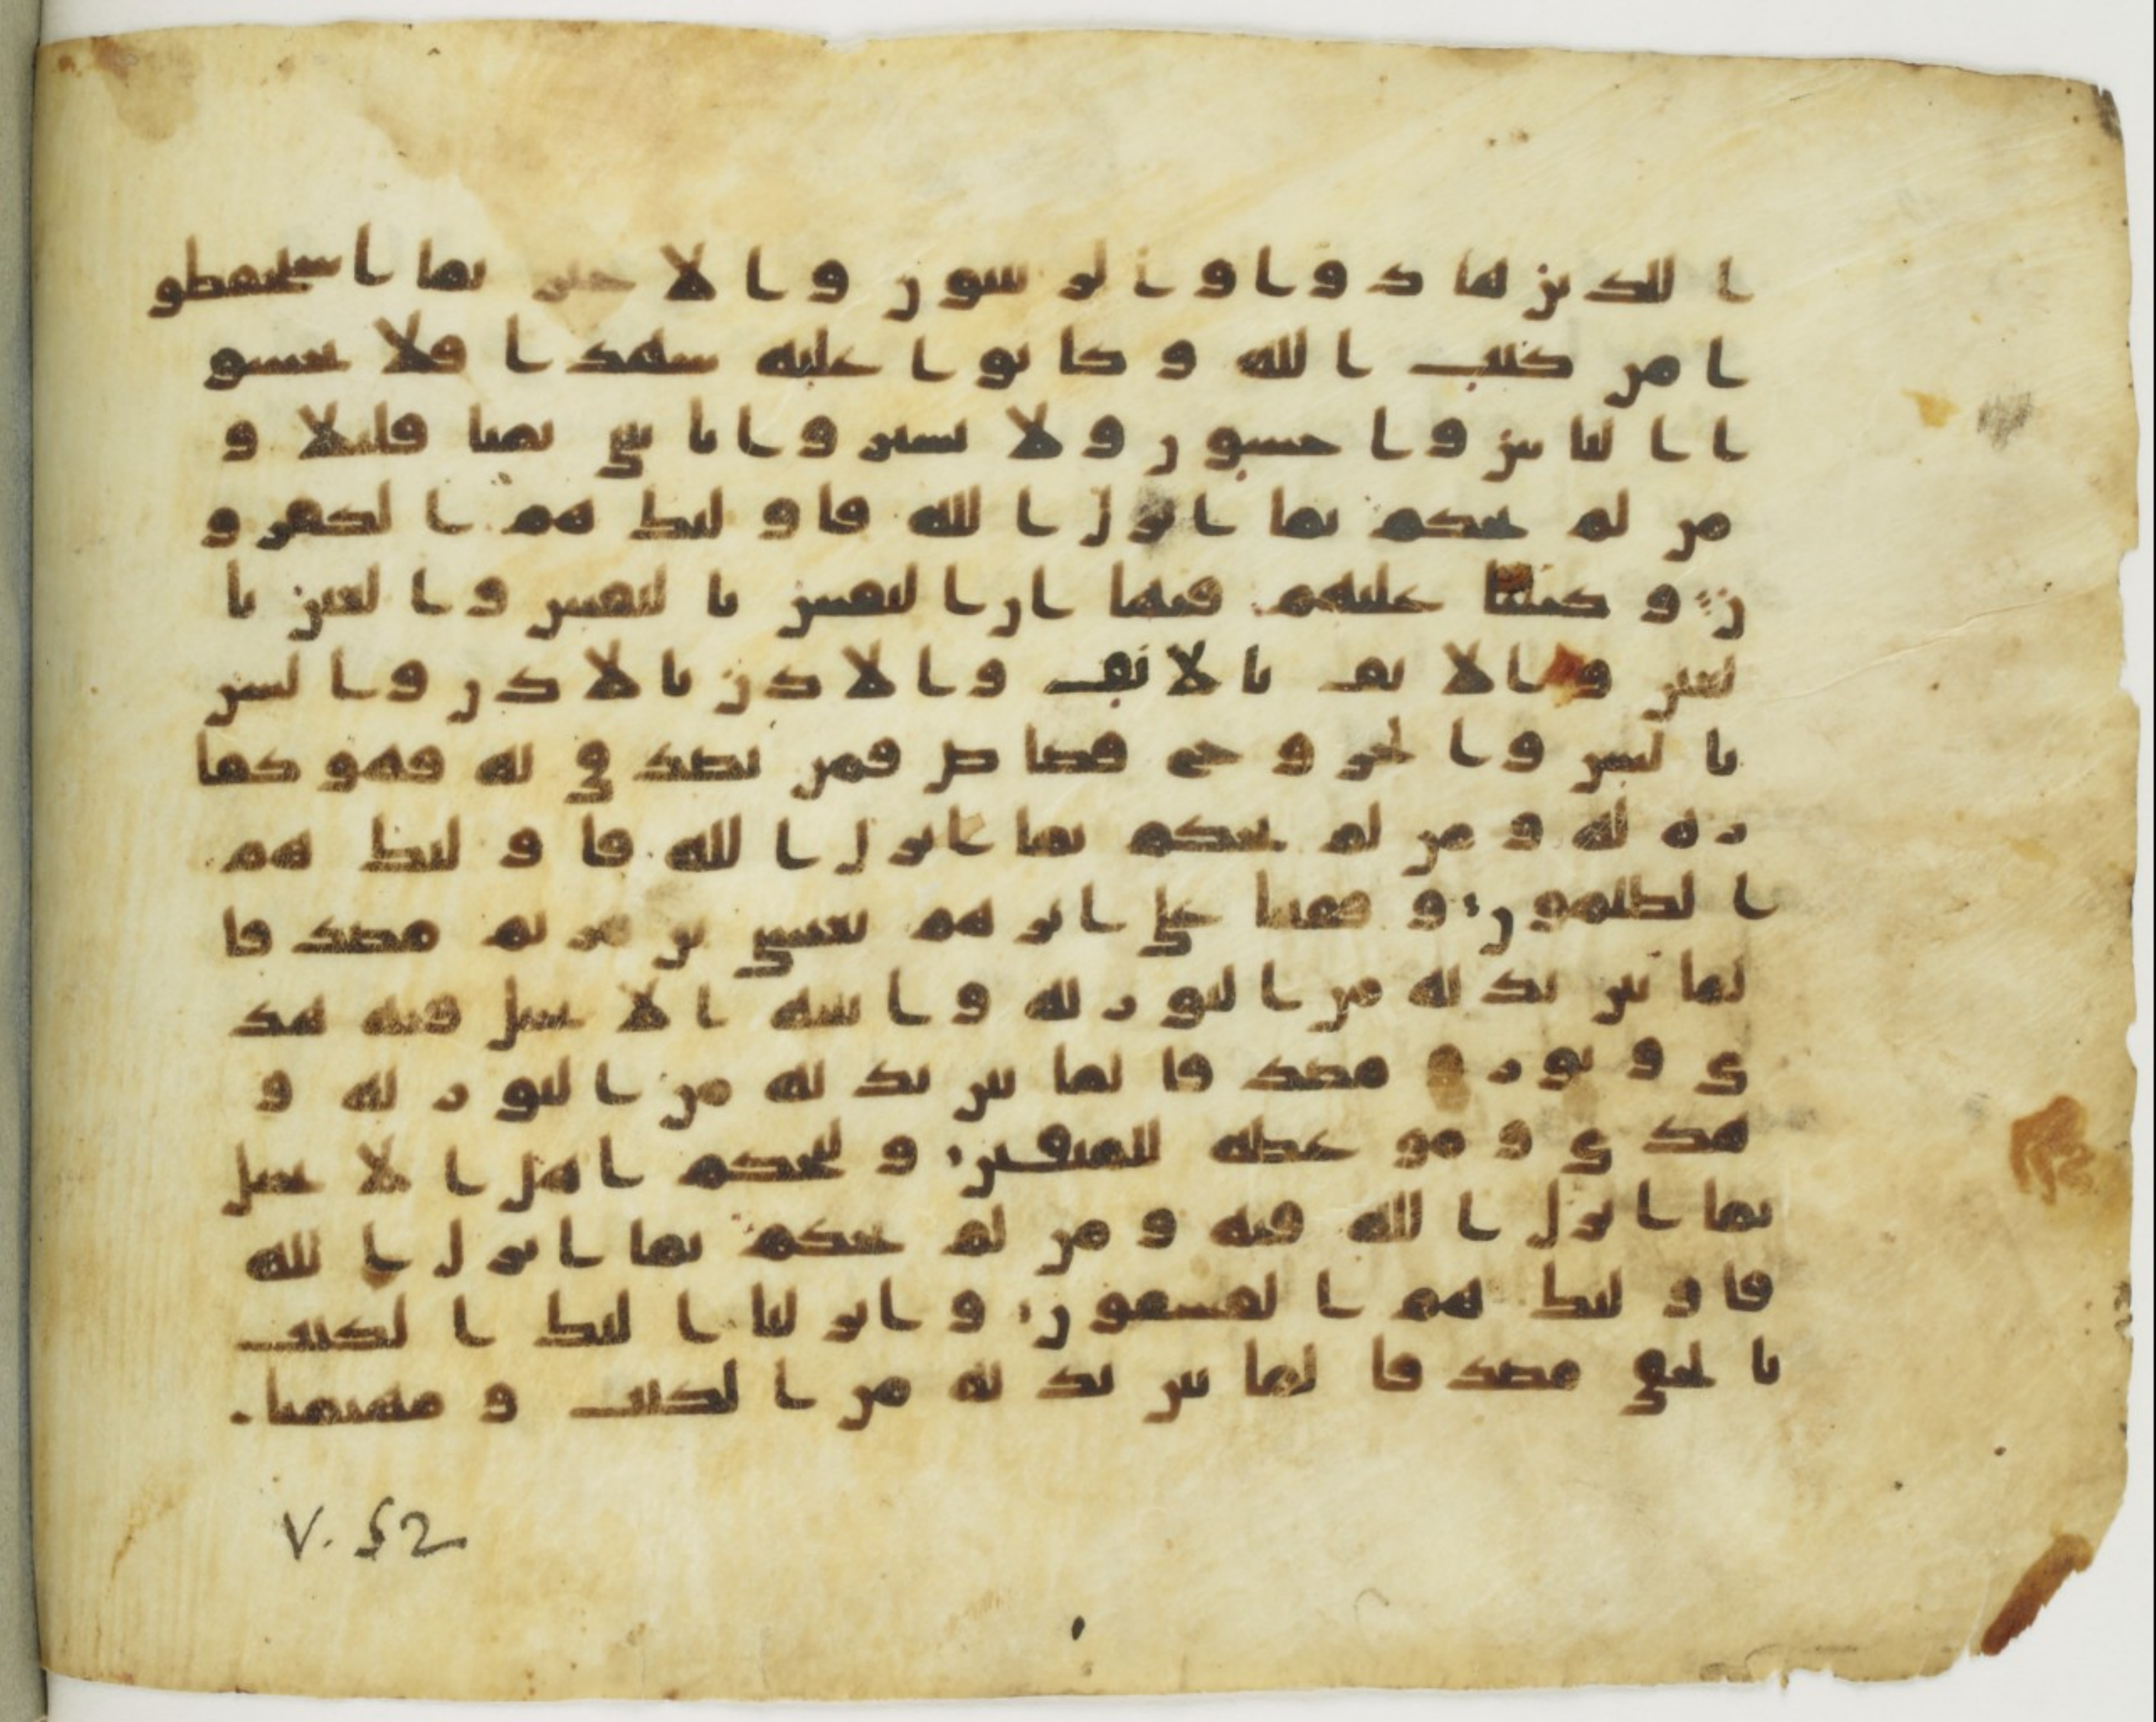 ا للذين هادوا وا لربنيون وا لاحبر بما استحفظو
ا من كتب ا لله و كا نوا عليه شهدا فلا تخشو
ا ا لنا س وا خشون ولا تشتروا با يتي ثمنا قليلا و
من لم يحكم بما ا نزل ا لله فا و ليك هم ا لكفرو
ن و كتبنا عليهم فيها ا ن ا لنفس با لنفس و ا لعين با
لعين و ا لا نف با لا نف و ا لا ذن با لا ذن و ا لسن
با لسن و ا لجروح قصا ص فمن تصد ق به فهو كفا
ر ه له و من لم يحكم بما ا نزل ا لله فا و ليك هم
ا لظلمون و قفينا على ا ثر هم بعيسى بن مريم مصد قا
لما بين يد يه من ا لتور ية و ا تينه ا لا نجيل فيه هد
ى و نور و مصد قا لما بين يد يه من ا لتور ية و
هد ى و مو عظة للمتقين و ليحكم ا هل ا لا نجيل
بما ا نزل ا لله فيه و من لم يحكم بما ا نزل ا لله
فا و ليك هم ا لفسقون و ا نز لنا ا ليك ا لكتب
با لحق مصد قا لما بين يد يه من ا لكتب و مهيمنا
V. 52